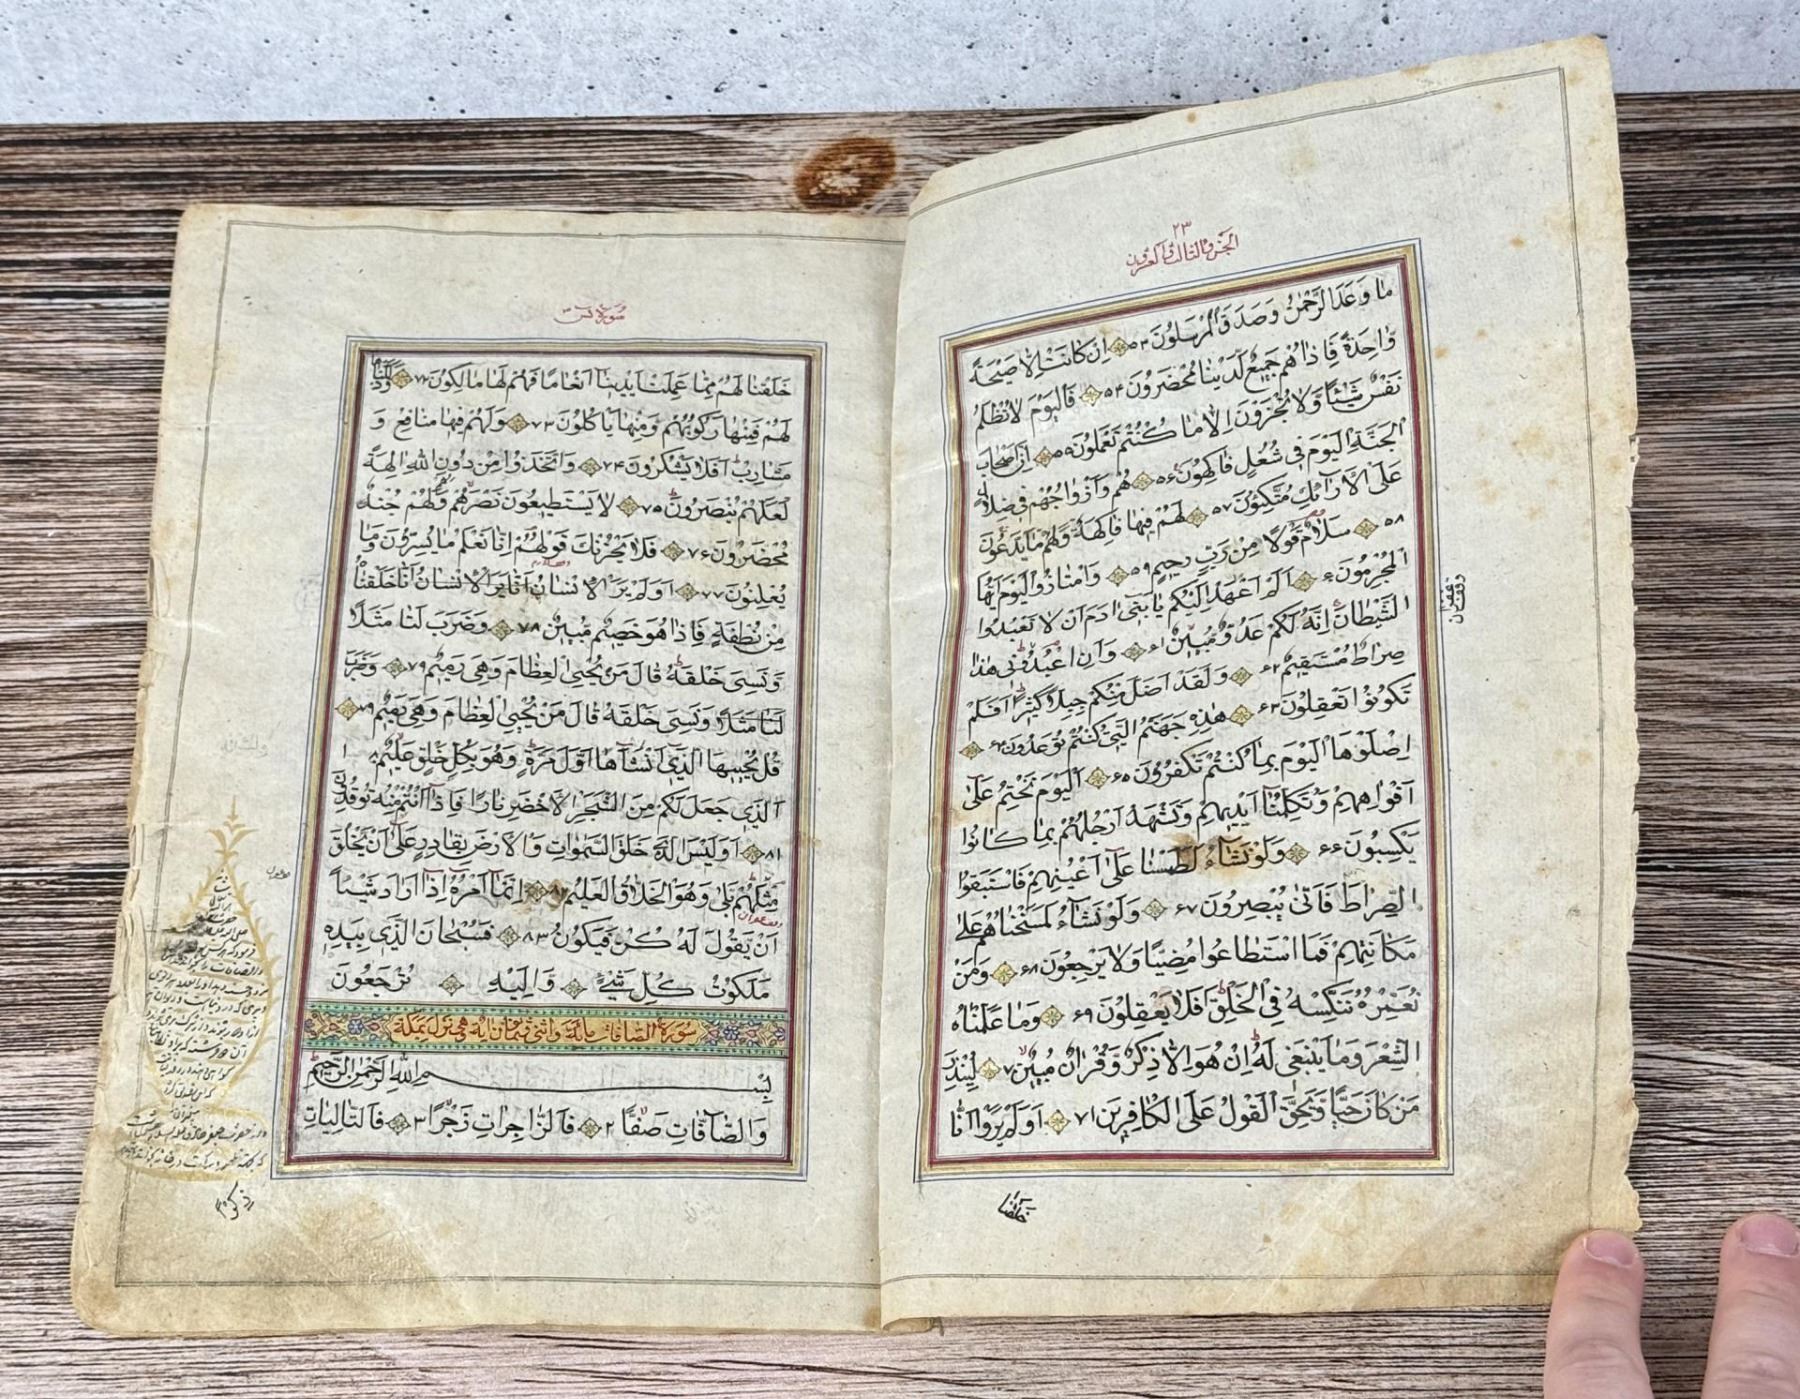 ٢٣
الجزء الثالث والعشرون
مَا وَعَدَ الرَّحْمٰنُ وَصَدَقَ الْمُرْسَلُونَ ٥٣ اِنْ كَانَتْ اِلَّا صَيْحَةً
وَاحِدَةً فَاِذَا هُمْ جَمِيعٌ لَدَيْنَا مُحْضَرُونَ ٥٤ فَالْيَوْمَ لَا تُظْلَمُ
نَفْسٌ شَيْئًا وَلَا تُجْزَوْنَ اِلَّا مَا كُنْتُمْ تَعْمَلُونَ ٥٥ اِنَّ اَصْحَابَ
الْجَنَّةِ الْيَوْمَ فِي شُغُلٍ فَاكِهُونَ ٥۶ هُمْ وَاَزْوَاجُهُمْ فِي ظِلَالٍ
عَلَى الْاَرَآئِكِ مُتَّكِئُونَ ٥٧ لَهُمْ فِيهَا فَاكِهَةٌ وَلَهُمْ مَا يَدَّعُونَ
٥٨ سَلَامٌ قَوْلًا مِنْ رَبٍّ رَحِيمٍ ٥٩ وَامْتَازُوا الْيَوْمَ اَيُّهَا
الْمُجْرِمُونَ ۶ اَلَمْ اَعْهَدْ اِلَيْكُمْ يَا بَنِي اٰدَمَ اَنْ لَا تَعْبُدُوا
الشَّيْطَانَ اِنَّهُ لَكُمْ عَدُوٌّ مُبِينٌ ۶١ وَاَنِ اعْبُدُونِي هٰذَا
صِرَاطٌ مُسْتَقِيمٌ ۶٢ وَلَقَدْ اَضَلَّ مِنْكُمْ جِبِلًّا كَثِيرًا اَفَلَمْ
تَكُونُوا تَعْقِلُونَ ۶٣ هٰذِهِ جَهَنَّمُ الَّتِي كُنْتُمْ تُوعَدُونَ ۶۴
اِصْلَوْهَا الْيَوْمَ بِمَا كُنْتُمْ تَكْفُرُونَ ۶٥ اَلْيَوْمَ نَخْتِمُ عَلَى
اَفْوَاهِهِمْ وَتُكَلِّمُنَا اَيْدِيهِمْ وَتَشْهَدُ اَرْجُلُهُمْ بِمَا كَانُوا
يَكْسِبُونَ ۶۶ وَلَوْ نَشَآءُ لَطَمَسْنَا عَلَى اَعْيُنِهِمْ فَاسْتَبَقُوا
الصِّرَاطَ فَاَنّٰى يُبْصِرُونَ ۶٧ وَلَوْ نَشَآءُ لَمَسَخْنَاهُمْ عَلَى
مَكَانَتِهِمْ فَمَا اسْتَطَاعُوا مُضِيًّا وَلَا يَرْجِعُونَ ۶٨ وَمَنْ
نُعَمِّرْهُ نُنَكِّسْهُ فِي الْخَلْقِ اَفَلَا يَعْقِلُونَ ۶٩ وَمَا عَلَّمْنَاهُ
الشِّعْرَ وَمَا يَنْبَغِي لَهُ اِنْ هُوَ اِلَّا ذِكْرٌ وَقُرْاٰنٌ مُبِينٌ ٧ لِيُنْذِرَ
مَنْ كَانَ حَيًّا وَيَحِقَّ الْقَوْلُ عَلَى الْكَافِرِينَ ٧١ اَوَلَمْ يَرَوْا اَنَّا
خَلَقْنَا
وقف غفران
سورة يس
خَلَقْنَا لَهُمْ مِمَّا عَمِلَتْ اَيْدِينَا اَنْعَامًا فَهُمْ لَهَا مَالِكُونَ ٧٢ وَذَلَّلْنَاهَا
لَهُمْ فَمِنْهَا رَكُوبُهُمْ وَمِنْهَا يَاْكُلُونَ ٧٣ وَلَهُمْ فِيهَا مَنَافِعُ وَ
مَشَارِبُ اَفَلَا يَشْكُرُونَ ٧۴ وَاتَّخَذُوا مِنْ دُونِ اللّٰهِ اٰلِهَةً
لَعَلَّهُمْ يُنْصَرُونَ ٧٥ لَا يَسْتَطِيعُونَ نَصْرَهُمْ وَهُمْ لَهُمْ جُنْدٌ
مُحْضَرُونَ ٧۶ فَلَا يَحْزُنْكَ قَوْلُهُمْ اِنَّا نَعْلَمُ مَا يُسِرُّونَ وَمَا
يُعْلِنُونَ ٧٧ اَوَلَمْ يَرَ الْاِنْسَانُ اَنَّا خَلَقْنَاهُ
مِنْ نُطْفَةٍ فَاِذَا هُوَ خَصِيمٌ مُبِينٌ ٧٨ وَضَرَبَ لَنَا مَثَلًا
وَنَسِيَ خَلْقَهُ قَالَ مَنْ يُحْيِي الْعِظَامَ وَهِيَ رَمِيمٌ ٧٩ وَضَرَبَ
لَنَا مَثَلًا وَنَسِيَ خَلْقَهُ قَالَ مَنْ يُحْيِي الْعِظَامَ وَهِيَ رَمِيمٌ ٧٩
قُلْ يُحْيِيهَا الَّذِي اَنْشَاَهَا اَوَّلَ مَرَّةٍ وَهُوَ بِكُلِّ خَلْقٍ عَلِيمٌ ٨
الَّذِي جَعَلَ لَكُمْ مِنَ الشَّجَرِ الْاَخْضَرِ نَارًا فَاِذَا اَنْتُمْ مِنْهُ تُوقِدُونَ
٨١ اَوَلَيْسَ الَّذِي خَلَقَ السَّمٰوَاتِ وَالْاَرْضَ بِقَادِرٍ عَلٰى اَنْ يَخْلُقَ
مِثْلَهُمْ بَلٰى وَهُوَ الْخَلَّاقُ الْعَلِيمُ ٨٢ اِنَّمَا اَمْرُهُ اِذَا اَرَادَ شَيْئًا
اَنْ يَقُولَ لَهُ كُنْ فَيَكُونُ ٨٣ فَسُبْحَانَ الَّذِي بِيَدِهِ
مَلَكُوتُ كُلِّ شَيْءٍ وَاِلَيْهِ تُرْجَعُونَ
سورة الصافات مائة واثنى وثمان اية وهي نزل بمكة
بِسْمِ اللّٰهِ الرَّحْمٰنِ الرَّحِيمِ
وَالصَّآفَّاتِ صَفًّا ٢ فَالزَّاجِرَاتِ زَجْرًا ٣ فَالتَّالِيَاتِ
ذكرا